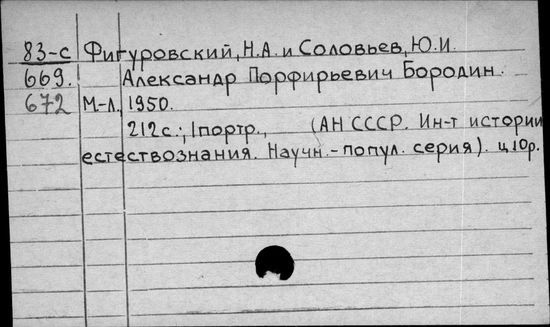 83-с Фигуровский, Н.А. и Соловьев, Ю.И.
669. Александр Порфирьевич Бородин.
672 М-Л, 1950.
212с., 1портр., (АН СССР. Ин-т истории
естествознания. Научн.-попул. серия). ц.10р.